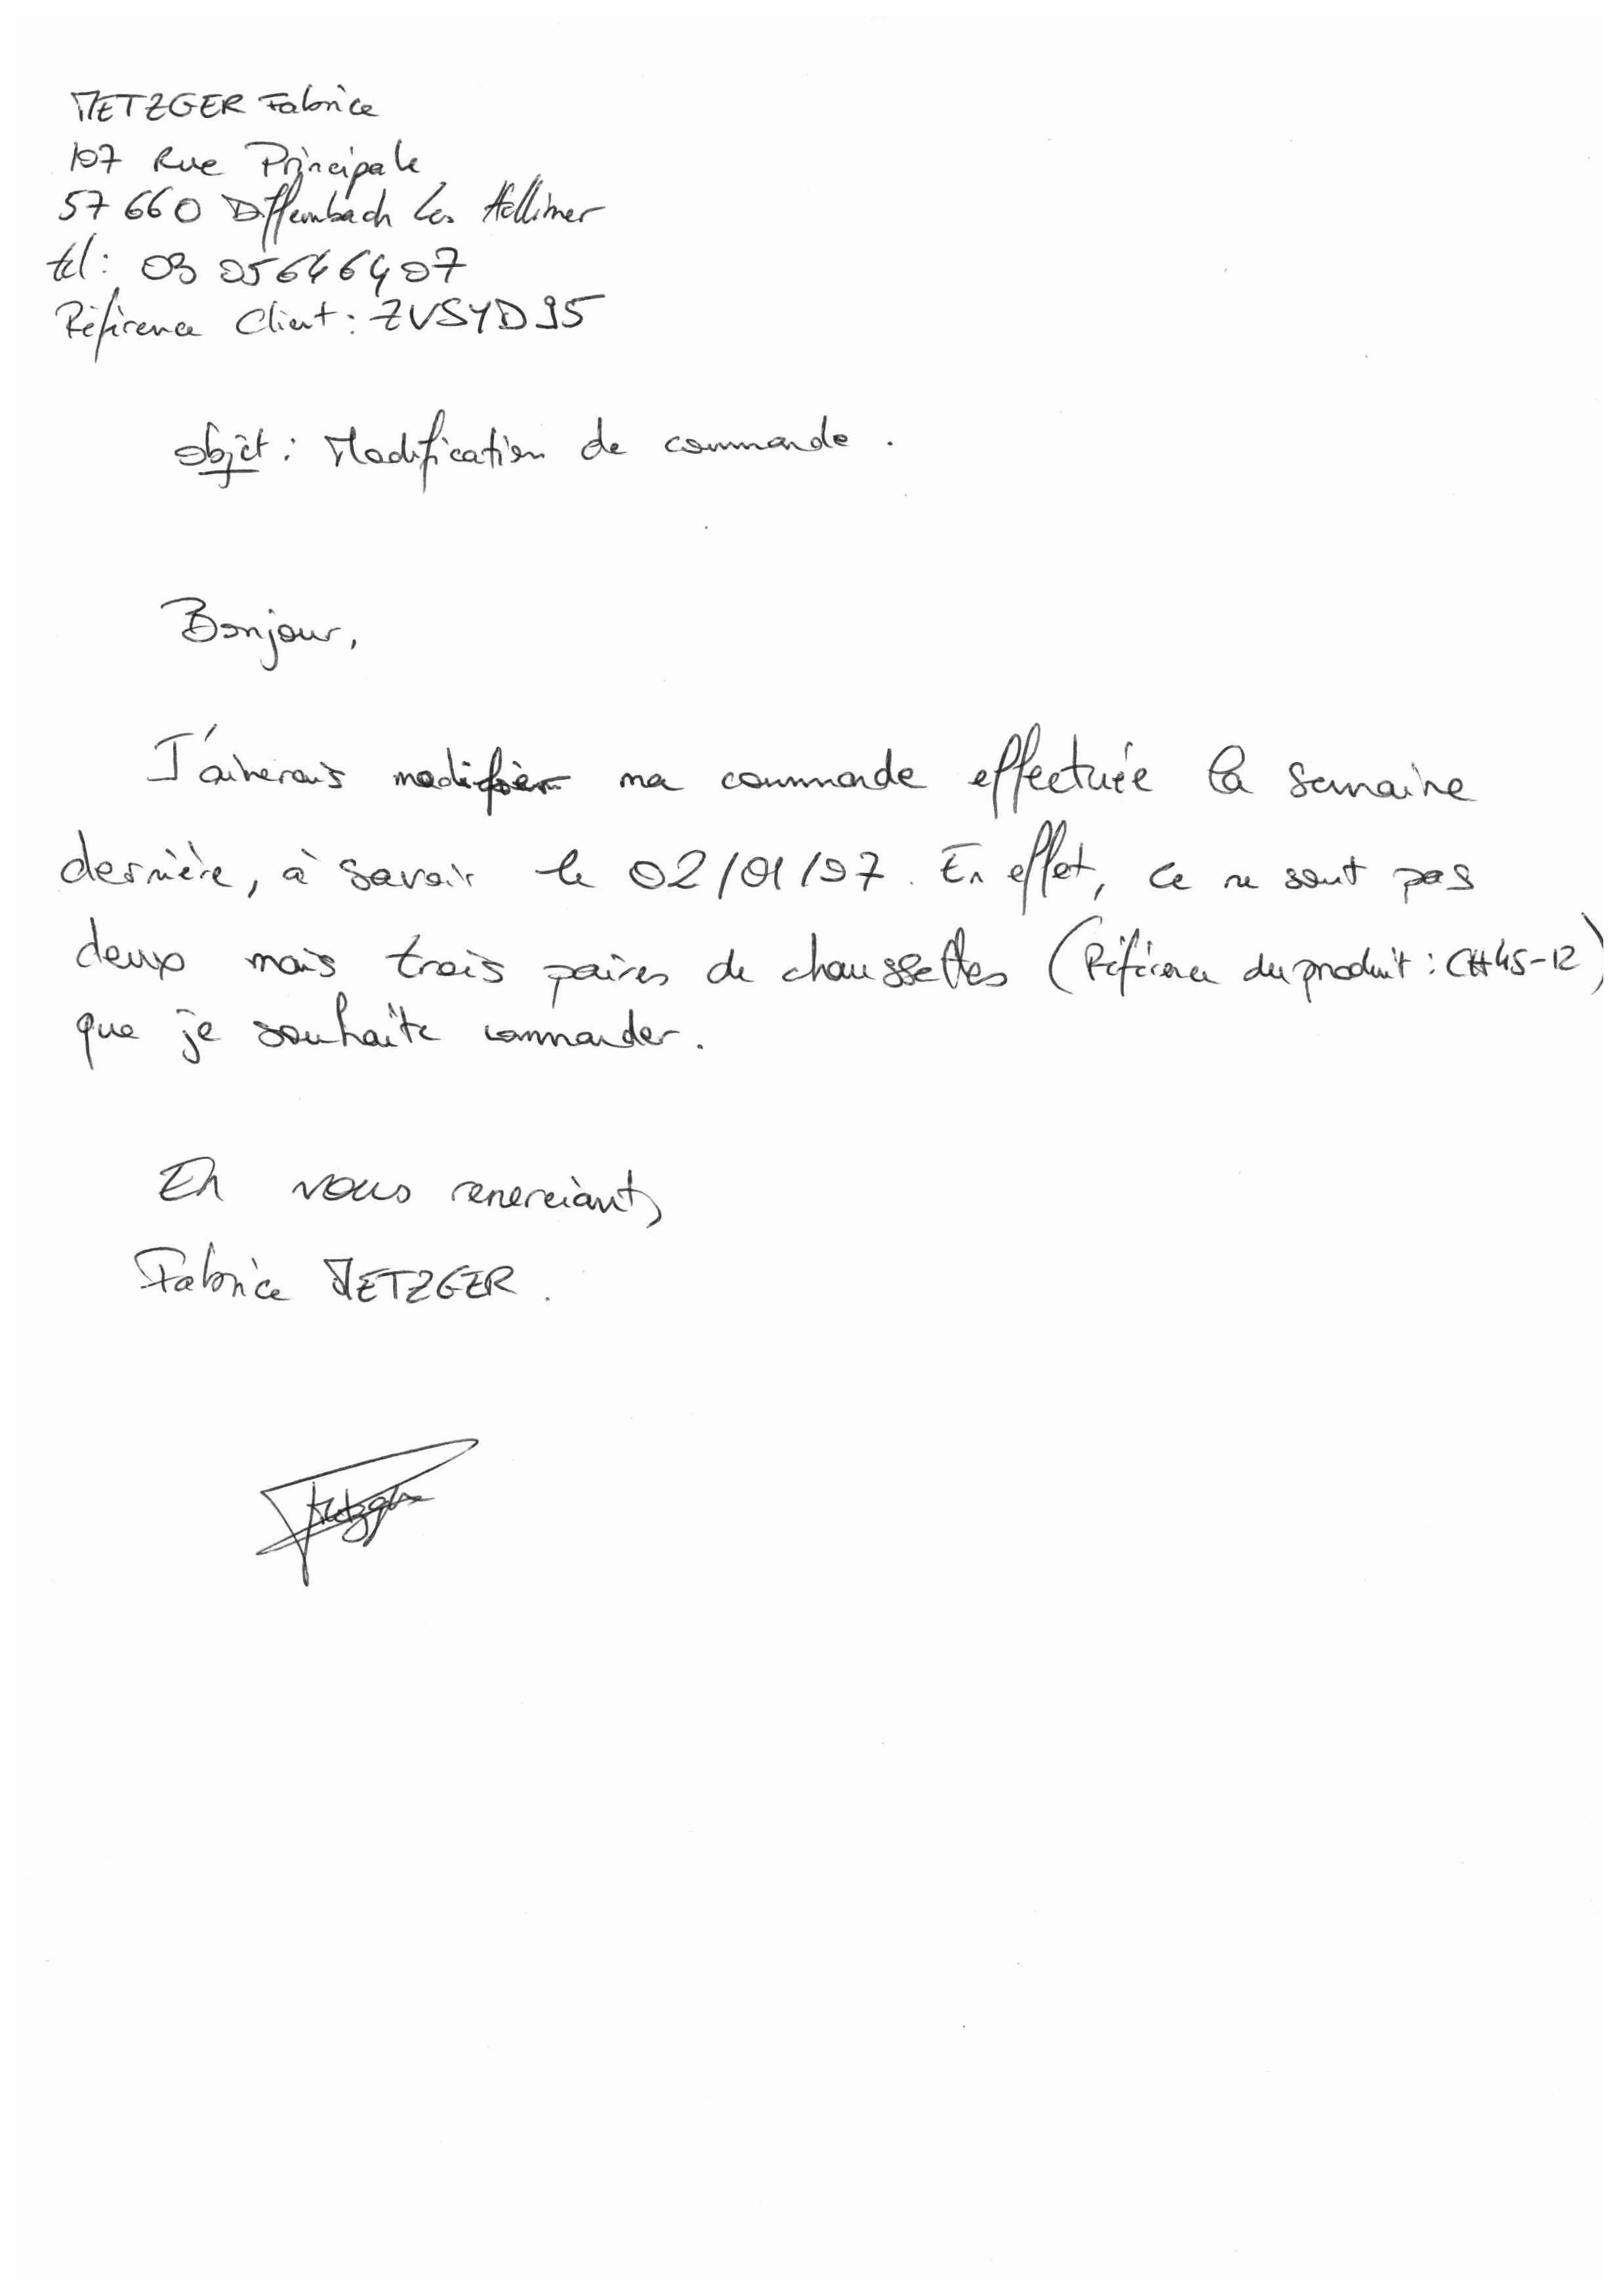 METZGER Fabrice
107 Rue Principale
57 660 Diffembach Les Hellimer
tel : 03 05646407
Référence Client : ZVSYD95
objet : Modification de commande .
Bonjour,
J'aimerais modifier ma commande effectuée la semaine
dernière, à savoir le 02/01/97. En effet, ce ne sont pas
deux mais trois paires de chaussettes (Référence du produit : CH45-12)
que je souhaite commander.
En vous remerciant,
Fabrice METZGER .
Metzger